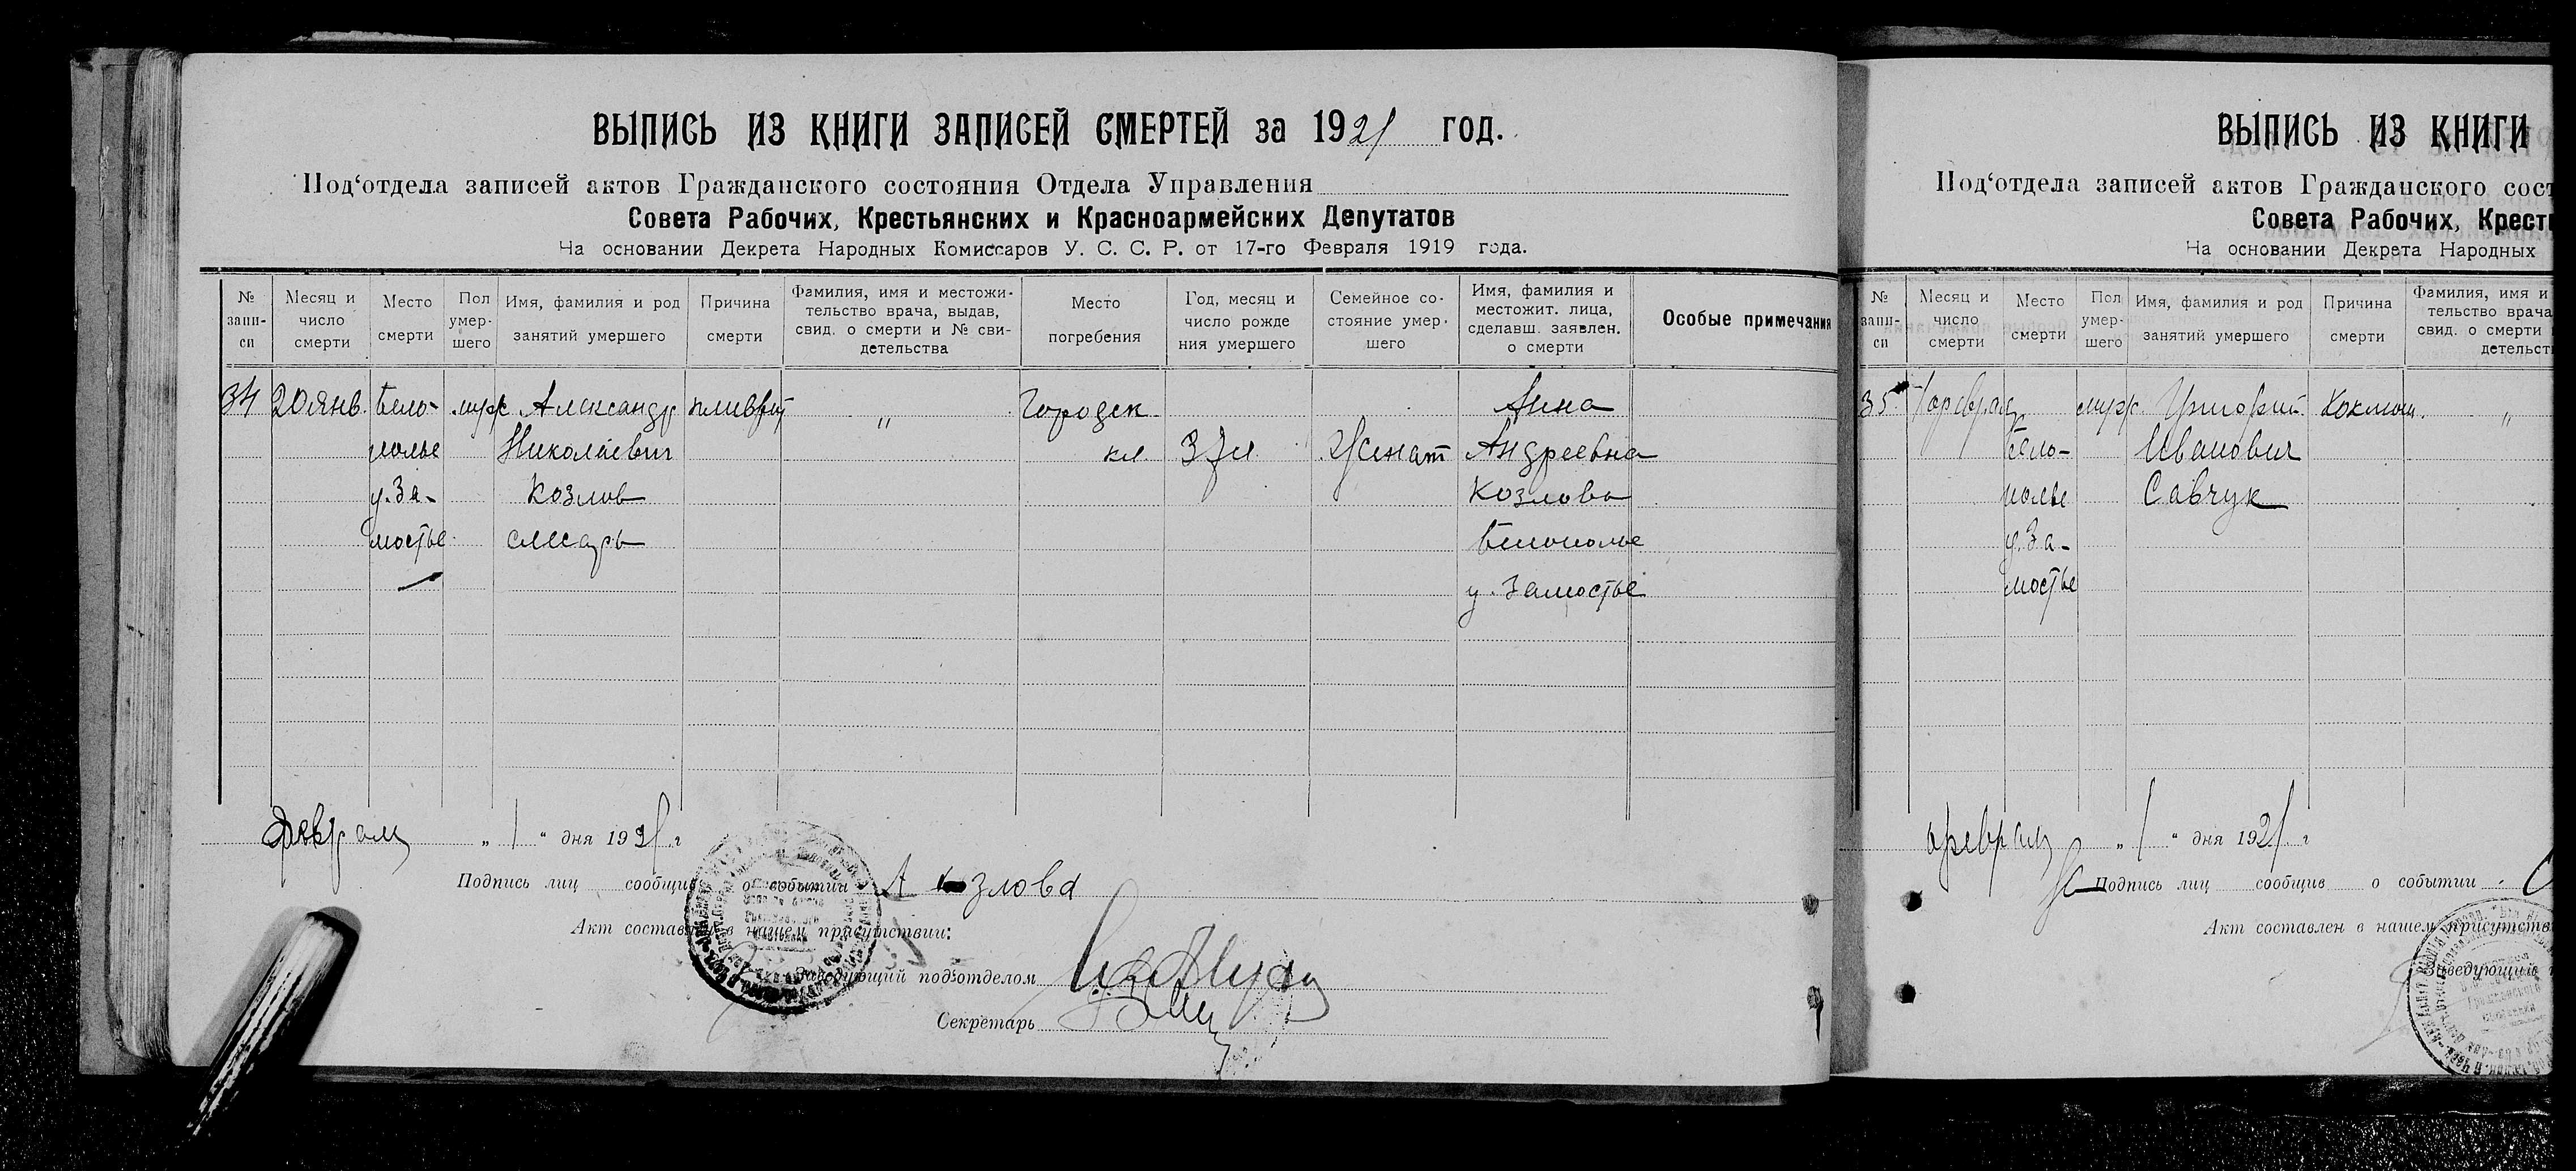 ВЫПИСЬ ИЗ КНИГИ ЗАПИСЕЙ СМЕРТЕЙ за 1921 год.
Под‘отдела записей актов Гражданского состояния Отдела Управления
Совета Рабочих, Крестьянских и Красноармейских Депутатов
На основании Декрета Народных Комиссаров У. С. С. Р. от 17-го Февраля 1919 года.
№ запи- си
Месяц и число смерти
Место смерти
Пол умер- шего
Имя, фамилия и род занятий умершего
Причина смерти
Фамилия, имя и местожи- тельство врача, выдав, свид. о смерти и № сви- детельства
Место погребения
Год, месяц и число рожде ния умершего
Семейное со- стояние умер- шего
Имя, фамилия и местожит. лица, сделавш. заявлен. о смерти
Особые примечания
34 20 янв. Бело- муж Александр плеврит „ Городск. Анна
полье Николаевич кл. 37 л Женат Андреевна
у. За- Козлов Козлова
мостье слесарь Белополье
у. Замостье
февраля „ 1 “ дня 1921 г
Подпись лиц сообщив о событии А Козлова
Акт составлен в нашем присутствии:
Заведующий под‘отделом
Секретарь
ВЫПИСЬ ИЗ КНИГИ
Под‘отдела записей актов Гражданского сост
Совета Рабочих, Крест
На основании Декрета Народных
№ запи- си
Месяц и число смерти
Место смерти
Пол умер- шего
Имя, фамилия и род занятий умершего
Причина смерти
Фамилия, имя и
тельство врача
свид. о смерти
детельст
35 1 февраля муж. Григорий Коклюш. „
Бело- Иванович
полье Савчук
у. За-
мостье
февраля „ 1 “ дня 1921 г
Подпись лиц сообщив о событии
Акт составлен в нашем присутств
Заведующий